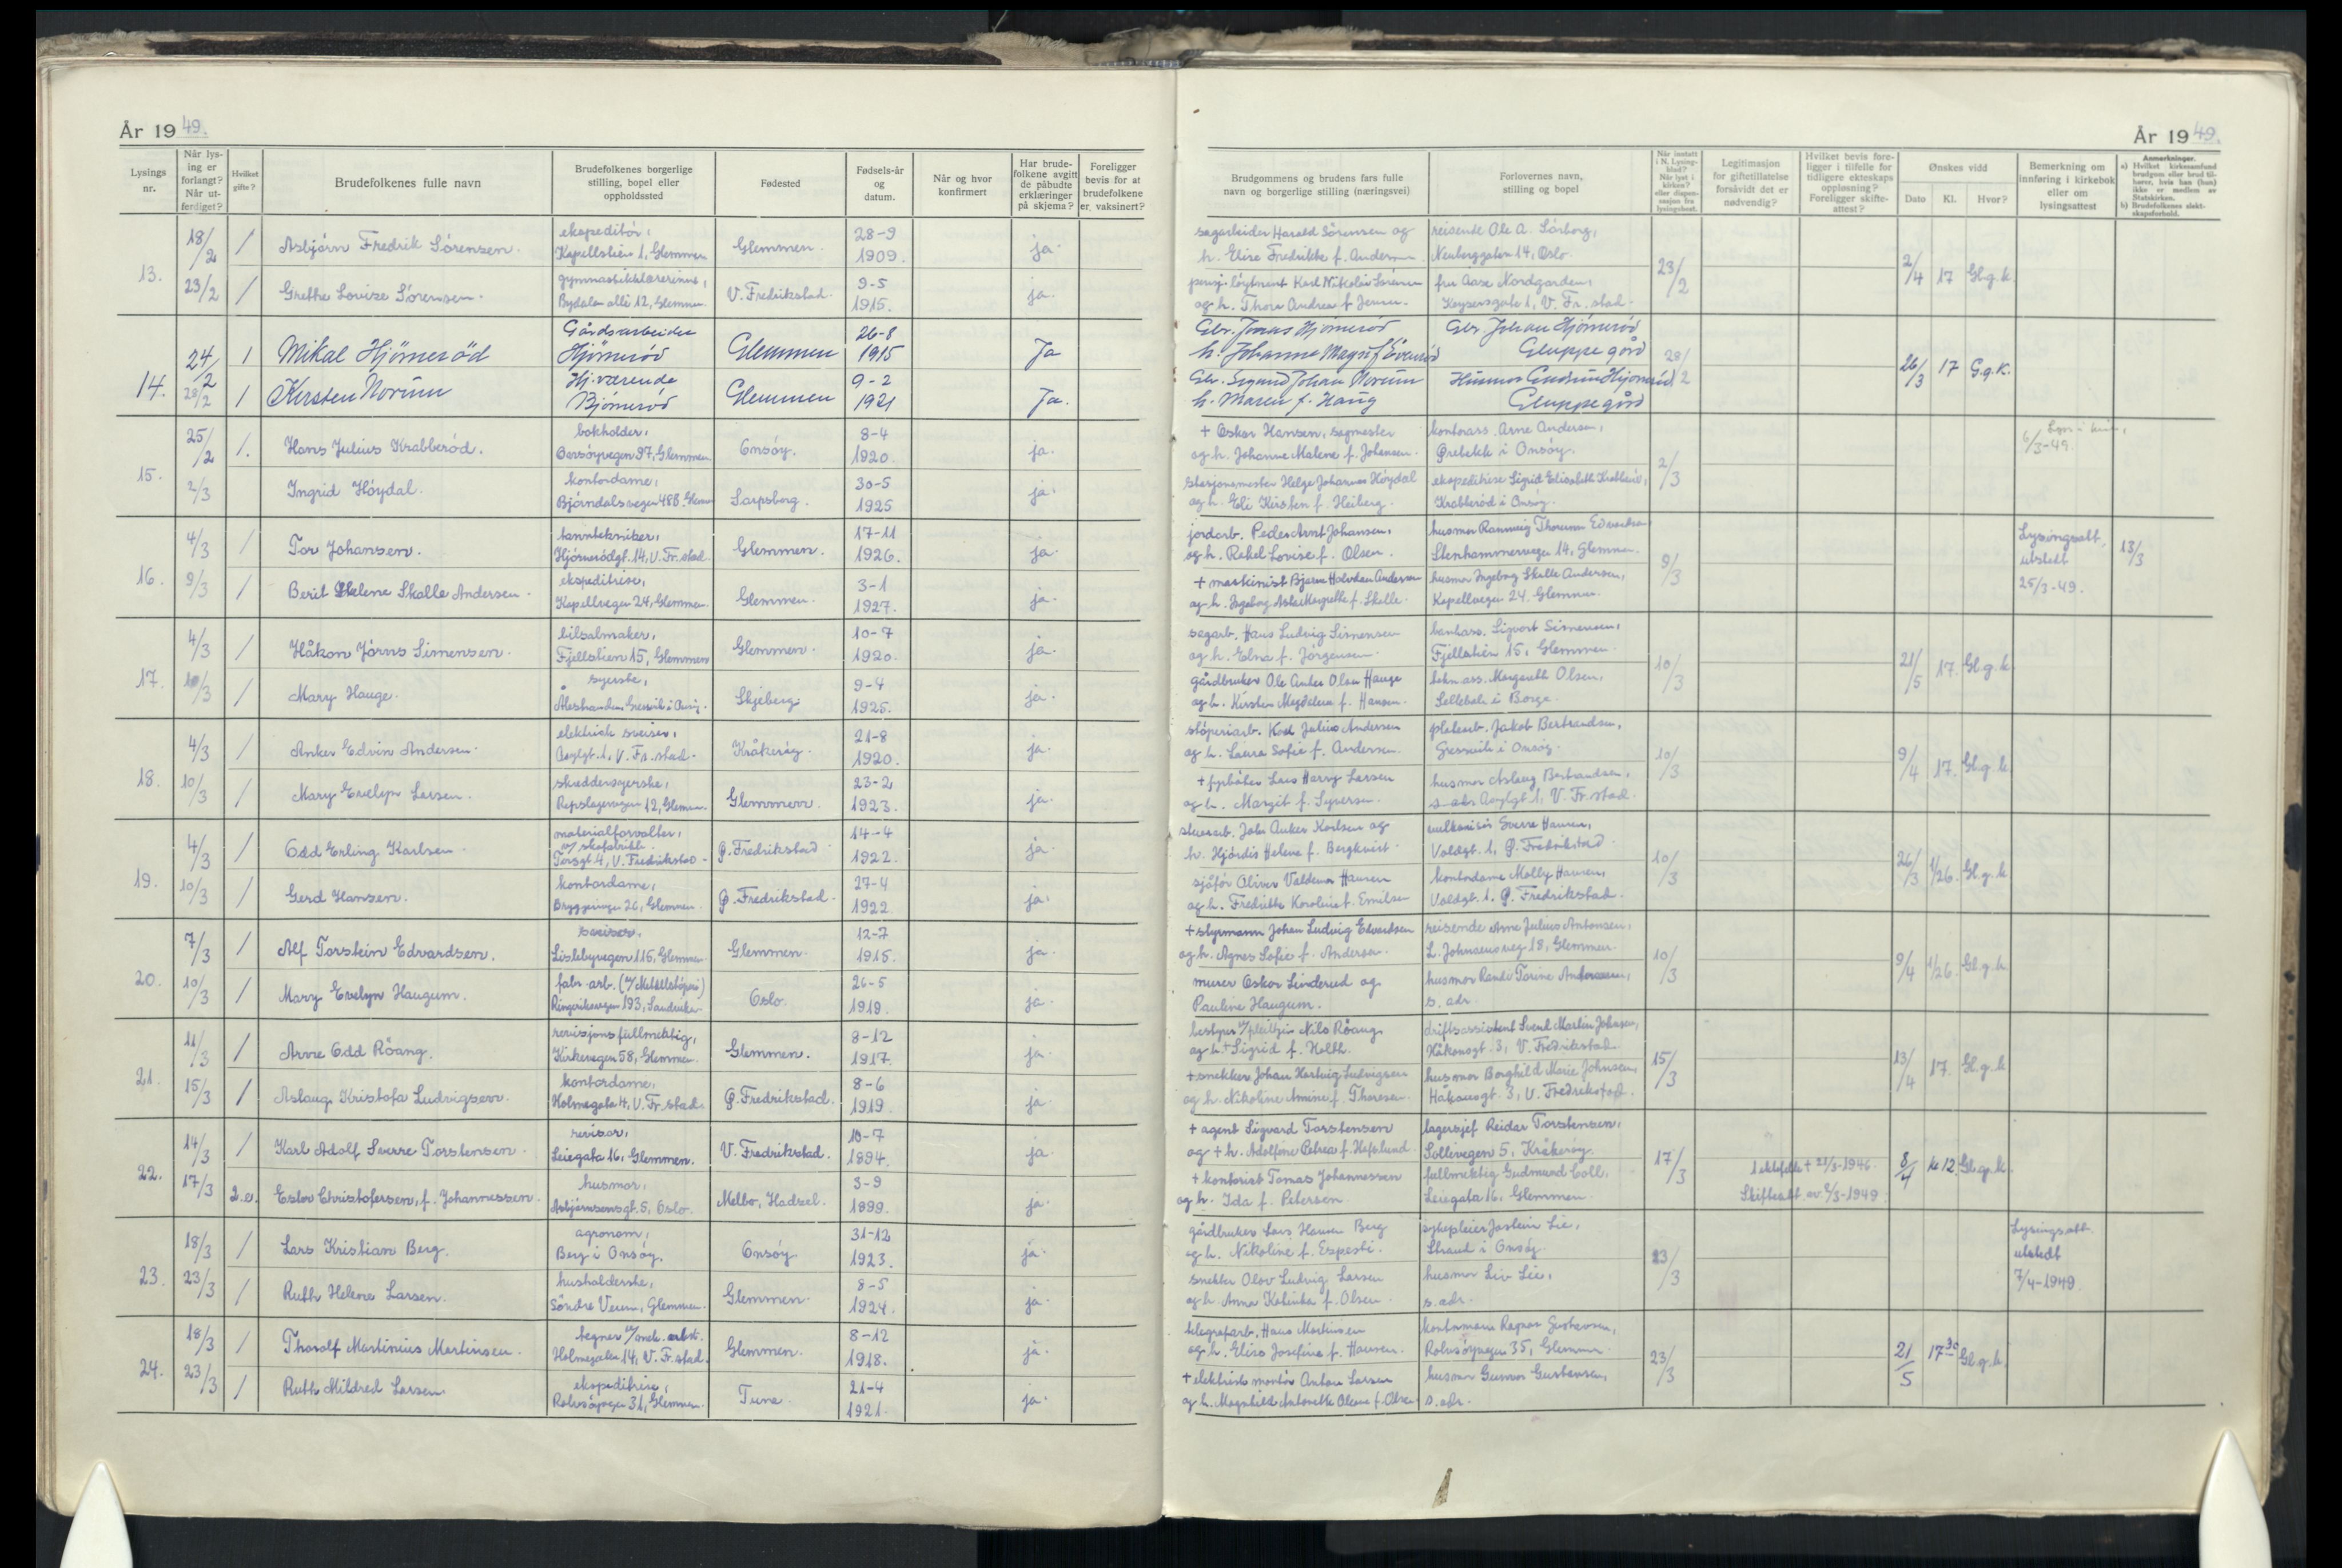 År 1949.
Lysings nr.
Når lysing er forlangt? Når utferdiget?
Hvilket gifte?
Brudefolkenes fulle navn
Brudefolkenes borgerlige stilling, bopel eller oppholdssted
Fødested
Fødsels-år og datum.
Når og hvor konfirmert
Har brudefolkene avgitt de påbudte erklæringer på skjema?
Foreligger bevis for at brudefolkene er vaksinert?
13. 18/2 / Asbjörn Fredrik Sörensen. ekspeditör, Kapellveien 1, Glemmen Glemmen. 28-9 1909. ja.
23/2 / Grethe Lovise Sörensen. gymnastikklærerinne, Bydalen allé 12, Glemmen. V. Fredrikstad. 9-5 1915. ja.
14. 24/2 1 Mikal Hjörneröd Gårdsarbeider Hjörneröd Glemmen 26-8 1915 Ja
28/2 1 Kirsten Norum Hj.værende Bjørneröd Glemmen 9-2 1921 Ja.
15. 25/2 1. Hans Julius Krabberöd. bokholder, 97, Glemmen. Onsöy. 8-4 1920. ja.
2/3 Ingrid Höydal. kontordame, Björndalsvegen 48B. Sarpsborg. 30-5 1925 ja.
16. 4/3 / Tor Johansen. tanntekniker, Hjörnerödgt. 14, V. Fr.stad. Glemmen. 17-11 1926. ja.
9/3 / Berit Helene Skolle Andersen. ekspeditrise, Kapellvegen 24, Glemmen. Glemmen. 3-1 1927. ja.
17. 4/3 / Håkon Jörns Simensen. bilsalmaker, Fjellstien 15, Glemmen Glemmen. 10-7 1920. ja.
10/3 / Mary Hauge. syerske, Ålestranden, Gressvik i Onsöy. Skjeberg. 9-4 1925. ja.
18. 4/3 / Anker Edvin Andersen. elektrisk sveiser, V. Fr.stad. Kråkeröy. 21-8 1920. ja.
10/3 / Mary Evelyn Larsen. skreddersyerske, Repslagervegen 12, Glemmen. Glemmen. 23-2 1923. ja.
19. 4/3 / Odd Erling Karlsen. materialforvalter, v/ skofabrikk. Torsgt. 4, V. Fredrikstad. G. Fredrikstad. 14-4 1922. ja.
10/3 / Gerd Hansen. kontordame, 26, Glemmen. G. Fredrikstad. 27-4 1922. ja.
20. 7/3 / Alf Torstein Edvardsen. sveiser. Lislebyvegen 116, Glemmen Glemmen. 12-7 1915. ja.
10/3 / Mary Evelyn Haugum. fabr. arb. Ringeriksvegen 193, Sandvika. Oslo. 26-5 1919. ja.
21. 11/3 / Arne Odd Röang. revisjonsfullmektig, Kirkevegen 58, Glemmen. Glemmen. 8-12 1917. ja.
15/3 / Aslaug Kristofa Ludvigsen. kontordame, Holmegata 4, V. Fr.stad. G. Fredrikstad. 8-6 1919. ja.
22. 14/3 / Karl Adolf Sverre Torstensen. revisor, Leiegata 16, Glemmen. V. Fredrikstad. 10-7 1894. ja.
17/3 2. e. Ester Christofersen, f. Johannessen. husmor, Asbjörnsensgt. 5, Oslo. Melbo, Hadsel. 3-9 1899. ja.
23. 18/3 / Lars Kristian Berg. agronom, Berg i Onsöy. Onsöy 31-12 1923. ja.
23/3 / Ruth Helene Larsen. husholderske, Söndre Veum, Glemmen. Glemmen. 8-5 1924. ja.
24. 18/3 / Thoralf Martinius Martinsen. tegner Holmegaten 14, V. Fr.stad. Glemmen. 8-12 1918. ja.
23/3 / Ruth Mildred Larsen. ekspeditrise, Rolvsöyvegen 31, Glemmen. Tune. 21-4 1921. ja.
År 1949.
Brudgommens og brudens fars fulle navn og borgerlige stilling (næringsvei)
Forlovernes navn, stilling og bopel
Når innsatt i N. Lysingblad? Når lyst i kirken? eller dispensasjon fra lysingsbest.
Legitimasjon for giftetillatelse forsåvidt det er nødvendig?
Hvilket bevis foreligger i tilfelle for tidligere ekteskaps oppløsning? Foreligger skifteattest?
Ønskes vidd
Dato Kl. Hvor?
Bemerkning om innføring i kirkebok eller om lysingsattest
Anmerkninger.
a) Hvilket kirkesamfund brudgom eller brud tilhører, hvis han (hun) ikke er medlem av Statskirken.
b) Brudefolkenes slektskapsforhold.
sagarbeider Harald Sörensen og reisende Ole A. Sörborg,
h. Elise Fredrikke f. Andersen Neuberggaten 14, Oslo. 23/2 2/4 17 Gl.g.k.
pensj. löytnant Karl Nikolai Sörensen fru Aase Nordgarden,
og h. Thora Andrea f. Jensen. Keysersgate 1, V. Fr.stad.
Gbr. Jonas Hjörneröd Gbr. Johan Hjörneröd
h. Johanne Gluppe gård 28/2 26/3 17 G.g.K.
Gbr. Sigurd Johan Norum Husmor Gudrun Hjörneröd
h. Maren f. Haug Gluppe gård
+ Oskar Hansen, sagmester kontorass. Arne Andersen, 6/3-49.
og h. Johanne Malene f. Johansen. i Onsöy. 2/3
stasjonsmester Helge Johannes Höydal ekspeditrise Sigrid Elisabeth Krabberöd,
og h. Eli Kirsten f. Heiberg. Krabberöd i Onsöy.
jordarb. Peder Arnt Johansen, husmor Rannveig Thorunn Edvardsen Lysingsatt.
og h. Rakel Lovise f. Olsen. Stenhammervegen 14, Glemmen. 9/3 utstedt 13/3
+ maskinist Bjarne Halvdan Andersen husmor Ingeborg Skolle Andersen, 25/3-49.
og h. Ingeborg f. Skolle. Kapellvegen 24. Glemmen.
sagarb. Hans Ludvig Simensen bankass. Sigvart Simensen,
og h. Elna f. Jörgensen. Fjellstien 15, Glemmen. 10/3 21/5 17. Gl.g.k.
gårdbruker Ole Anker Olsen Hauge Margareth Olsen,
og h. Kirsten Magdalena f. Hansen. Sellebakk i Borge.
stöperiarb. Karl Julius Andersen platearb. Jakob Bertrandsen,
og h. Laura Sofie f. Andersen. Gressvik i Onsöy. 10/3 9/4 17. Gl.g.k.
+ fyrböter Lars Harry Larsen husmor Aslaug Bertrandsen,
og h. Margit f. Syversen. V. Fr.stad.
John Anker Karlsen og Sverre Hansen,
h. Hjördis Helene f. Bergkvist. Voldgt. 1, G. Fredrikstad. 10/3 26/3 1/26. Gl.g.k.
sjåför Oliver Valdemar Hansen kontordame Molly Hansen,
og h. Fredrikke Karoline f. Emilsen Voldgt. 1. G. Fredrikstad.
+ styrmann Johan Ludvig Edvardsen reisende Arne Julius Antonsen,
og h. Agnes Sofie f. Andersen. L. Johnsensveg 18, Glemmen. 10/3 9/4 1/26. Gl.g.k.
murer Oskar Linderud og husmor Randi Torine
Pauline Haugum. s. adr.
Nils Röang driftsassistent Svend Martin Johnsen,
og h. + Sigrid f. Holth. Håkonsgt. 3, V. Fredrikstad. 15/3 13/4 17. Gl.g.k
+ snekker Johan Hartvig Ludvigsen husmor Borghild Marie Johnsen,
og h. Nikoline Amine f. Thoresen. Håkonsgt. 3, V. Fredrikstad.
+ agent Sigvard Torstensen lagersjef Reidar Torstensen,
og + h. Adolfine Petrea f. Hafslund. Sollivegen 5, Kråkeröy. 17/3 1 ektefelle + 21/3-1946. 8/4 kl 12. Gl.g.k.
+ kontorist Tomas Johannessen fullmektig Gudmund Coll,
og h. Ida f. Petersen Leiegata 16, Glemmen. Skifteatt. av 2/3-1949
gårdbruker Lars Hansen Berg sykepleier Jostein Lie, Lysingsatt.
og h. Nikoline f. Espesti. Strand i Onsöy. 23/3 utstedt
snekker Olov Ludvig Larsen husmor Liv Lie, 7/4-1949
og h. Anna Katinka f. Olsen. s. adr.
telegrafarb. Hans Martinsen kontormann Ragnar Gustavsen,
og h. Elise Josefine f. Hansen. Rolvsöyvegen 35, Glemmen. 23/3 21/5 17 30 Gl.g.k.
+ elektrisk montör Anton Larsen husmor Gunvor Gustavsen,
og h. Magnhild Antonette Oleane f. Olsen s. adr.